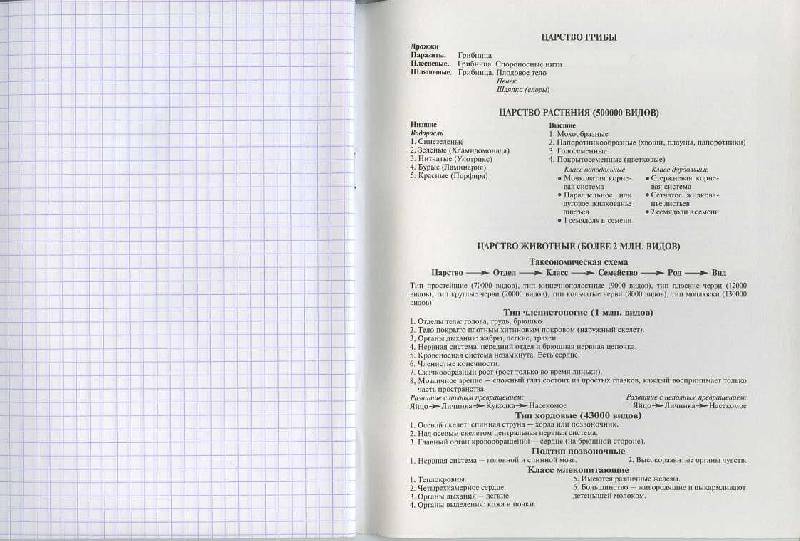 ЦАРСТВО ГРИБЫ
Дрожжи
Паразиты. Грибница
Плесневые. Грибница. Спороносные нити
Шляпочные. Грибница. Плодовое тело
Пенек
Шляпка (споры)
ЦАРСТВО РАСТЕНИЯ (500000 ВИДОВ)
Низшие
Водоросли
1. Синезеленые
2. Зеленые (Хламидомонада)
3. Нитчатые (Улотрикс)
4. Бурые (Ламинария)
5. Красные (Порфира)
Высшие
1. Мохообразные
2. Папоротникообразные (хвощи, плауны, папоротники)
3. Голосеменные
4. Покрытосеменные (цветковые)
Класс однодольные
• Мочковатая корне-
вая система
• Параллельное или
дуговое жилкование
листьев
• 1 семядоля в семени
Класс двудольные
• Стержневая корне-
вая система
• Сетчатое жилкова-
нье листьев
• 2 семядоли в семени
ЦАРСТВО ЖИВОТНЫЕ (БОЛЕЕ 2 МЛН. ВИДОВ)
Таксономическая схема
Царство Отдел Класс Семейство Род Вид
Тип простейшие (70000 видов), тип кишечнополостные (9000 видов), тип плоские черви (12000
видов), тип круглые черви (20000 видов), тип кольчатые черви (8000 видов), тип моллюски (130000
видов)
Тип членистоногие (1 млн. видов)
1. Отделы тела: голова, грудь, брюшко.
2. Тело покрыто плотным хитиновым покровом (наружный скелет).
3. Органы дыхания: жабры, легкие, трахеи.
4. Нервная система: передний отдел и брюшная нервная цепочка.
5. Кровеносная система незамкнута. Есть сердце.
6. Членистые конечности.
7. Скачкообразный рост (рост только во время линьки).
8. Мозаичное зрение – сложный глаз состоит из простых глазков, каждый воспринимает только
часть пространства.
Развитие с полным превращением: Развитие с неполным превращением:
Яйцо Личинка Куколка Насекомое Яйцо Личинка Насекомое
Тип хордовые (43000 видов)
1. Осевой скелет: спинная струна – хорда или позвоночник.
2. Над осевым скелетом центральная нервная система.
3. Главный орган кровообращения – сердце (на брюшной стороне).
Подтип позвоночные
1. Нервная система – головной и спинной мозг. 2. Высокоразвитые органы чувств.
Класс млекопитающие
1. Теплокровны
2. Четырехкамерное сердце
3. Органы дыхания – легкие
4. Органы выделения: кожа и почки.
5. Имеются различные железы.
6. Большинство – живородящие и выкармливают
детенышей молоком.